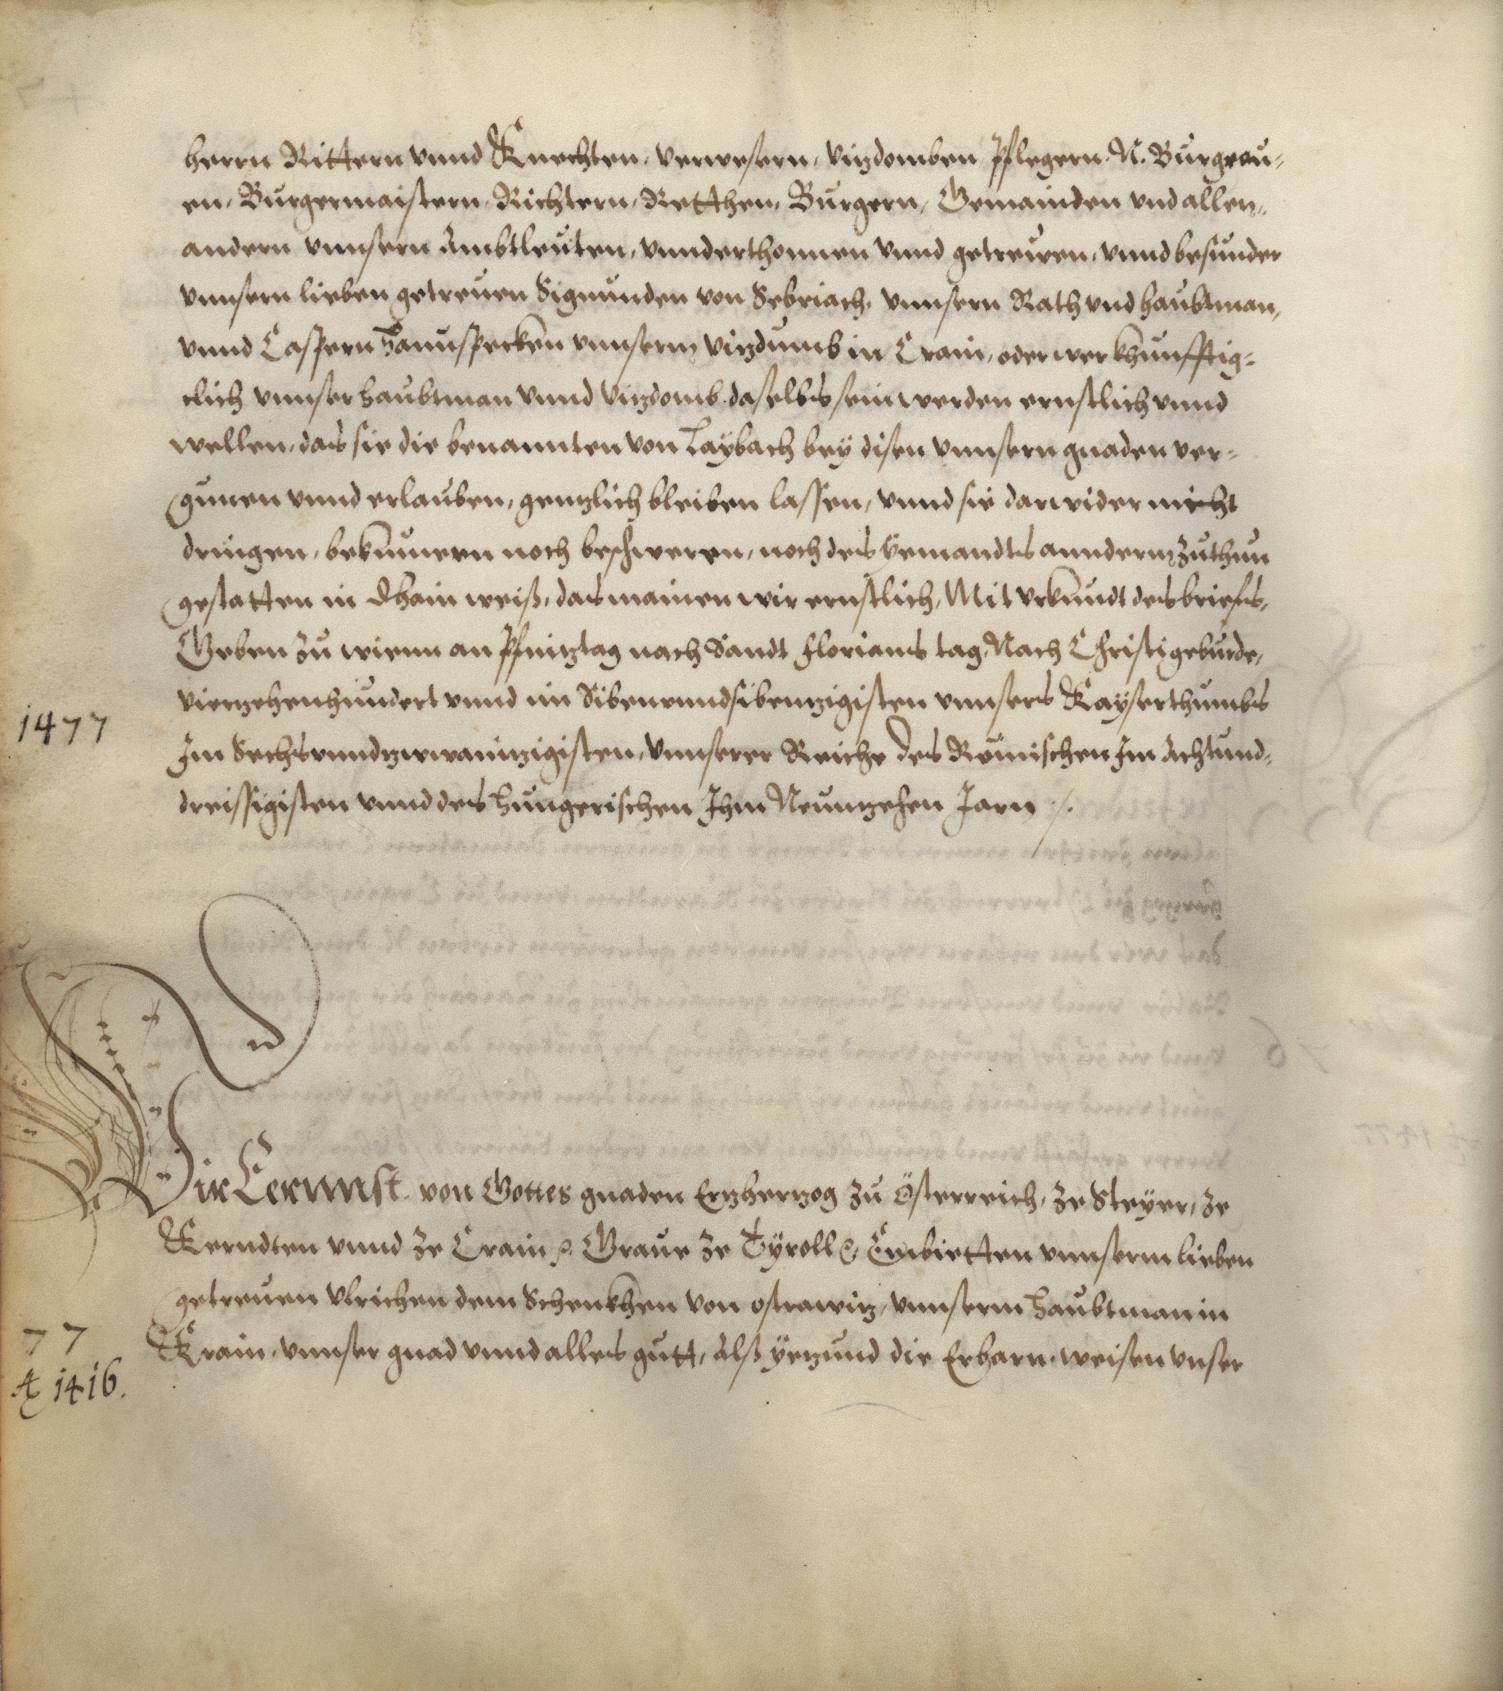 herrn Rittern vnnd Knechten, verwesern, vitzdomben Pflegern N. Burgrau-
en, Burgermaistern, Richtern, Retthen, Burgern, Gemainden vnd allen
andern vnnsern Ambtleuten, vnnderthonnen vnnd getrewen, vnnd besunder
vnnsern lieben getreuen Sigmunden von Sebriach, vnnsern Rath vnd haubtman,
vnnd Caspern Hannspecken vnnserm vitzdumb in Crain, oder wer khunfftig-
clich vnnser haubtman vnnd vitzdomb daselbs sein werden ernstlich vnnd
wellen, das sie die benannten von Laybach bey disen vnnsern gnaden ver-
gunen vnnd erlauben, gentzlich bleiben lassen, vnnd sie darwider nicht
dringen, bekumern noch beschweren, noch des yemandts anndern zuthun
gestatten in Khain weiß, das mainen wir ernstlich, Mit vrkhundt des briefs,
Geben zu wienn an Pfintztag nach Sandt Florians tag, Nach Christi geburde,
viertzehenhundert vnnd im Sibenvndsibentzigisten vnnsers Kayserthumbs
Im Sechsvnndtzwaintzigisten, vnnserer Reiche des Römischen Im Achtund-
dreissigisten vnnd des hungerischen Ihm Neuntzehen Jarn ./.
1477
Wir Ernnst von Gottes gnaden Ertzhertzog zu Österreich, ze Steyer, ze
Kerndten vnnd ze Crain &. Graue ze Tyroll &. Embietten vnnserm lieben
getreuen Vlrichen dem Schenkhen von ostrawitz, vnnserm haubtman in
Krain, vnnser gnad vnnd alles gutt, Alß yetzund die Erbarn, weisen vnser
77
A 1416.